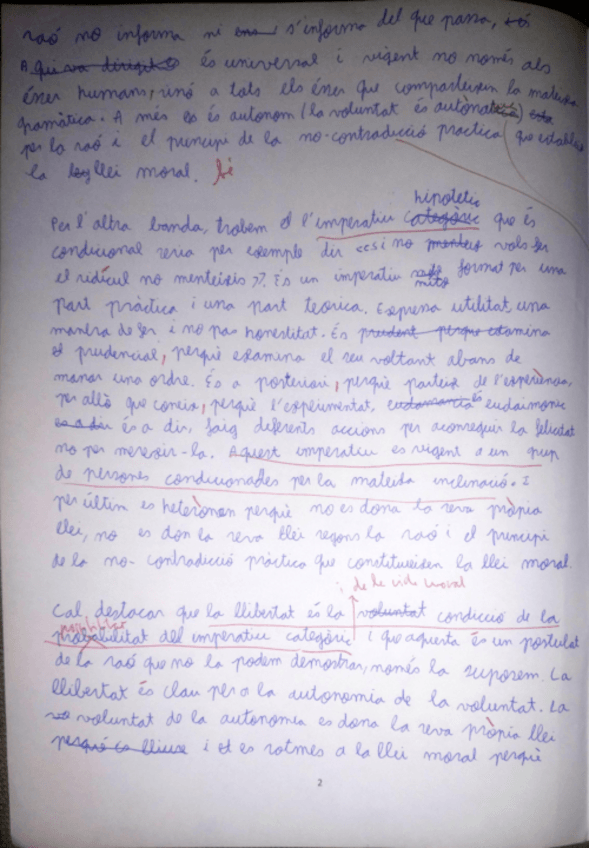 raó no informa ni s'informa del que passa,
A qui va dirigit és universal i vigent no només als
ésser humans, sinó a tots els ésser que comparteixen la mateixa
gramàtica. A més es és autònom (la voluntat és autònoma)
per la raó i el principi de la no-contradicció pràctica que estableix
la llei moral. bé
hipotètic
Per l'altra banda, trobem l'imperatiu categòric que és
condicional seria per exemple dir «si no menteixo vols fer
el ridícul no menteixis». És un imperatiu mito format per una
mixto
part pràctica i una part teòrica. Expresa utilitat, una
manera de fer i no pas honestitat. És prudent perquè examina
prudencial, perquè examina el seu voltant abans de
manar una ordre. És a posteriori, perquè parteix de l'experiència,
per allò que coneix, perquè l'experimentat, és eudaimonic
es a dir és a dir, faig diferents accions per aconseguir la felicitat
no per mereixer-la. Aquest imperatiu es vigent a un grup
de persones condicionades per la mateixa inclinació. I
per últim es heterònom perquè no es dona la seva pròpia
llei, no es don la seva llei segons la raó i el principi
de la no-contradicció pràctica que constitueixen la llei moral.
de la vida moral
Cal, destacar que la llibertat és la voluntat condició de la
possibilitat
probabilitat del imperatiu categòric i que aquesta és un postulat
de la raó que no la podem demostrar, només la suposem. La
llibertat és clau per a la autonomia de la voluntat. La
voluntat de la autonomia es dona la seva pròpia llei
perquè és lliure i et es sotmes a la llei moral perquè
2